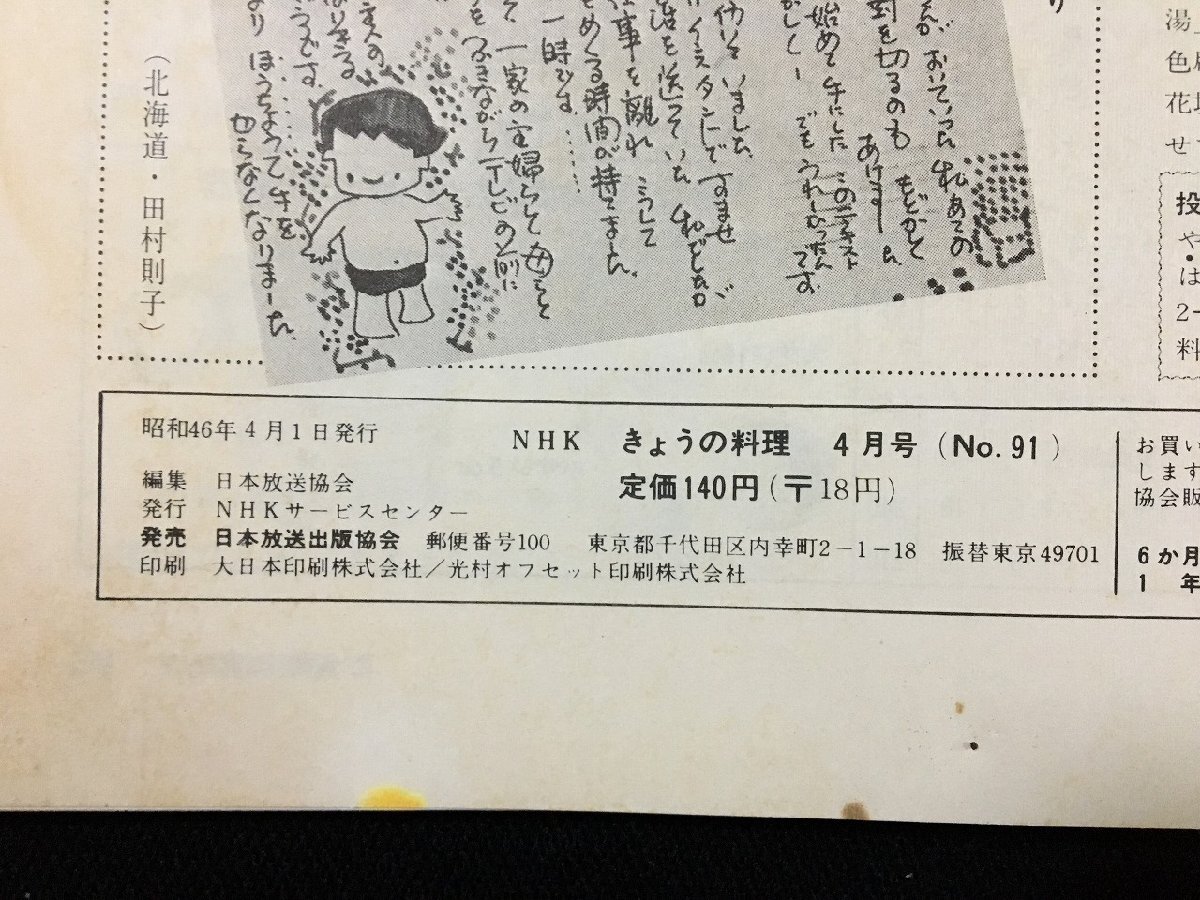 おいていった 私あての
封を切るのも もどかしく
あけました
始めて手にした このテキスト
でも うれしかったんです
いました
インスタントですませ
送っていた 私どもが
仕事を離れ こうして
をめくる時間が持てました
一時でも……
一家の主婦らしく 母らしく
をふきながら テレビの前に
ほうちょうもって 手を
（北海道・田村則子）
昭和46年4月1日発行
NHK きょうの料理 4月号（No. 91）
定価140円（〒18円）
編集 日本放送協会
発行 NHKサービスセンター
発売 日本放送出版協会 郵便番号100 東京都千代田区内幸町2-1-18 振替東京49701
印刷 大日本印刷株式会社／光村オフセット印刷株式会社
お買い
します
協会販
6か月
1 年